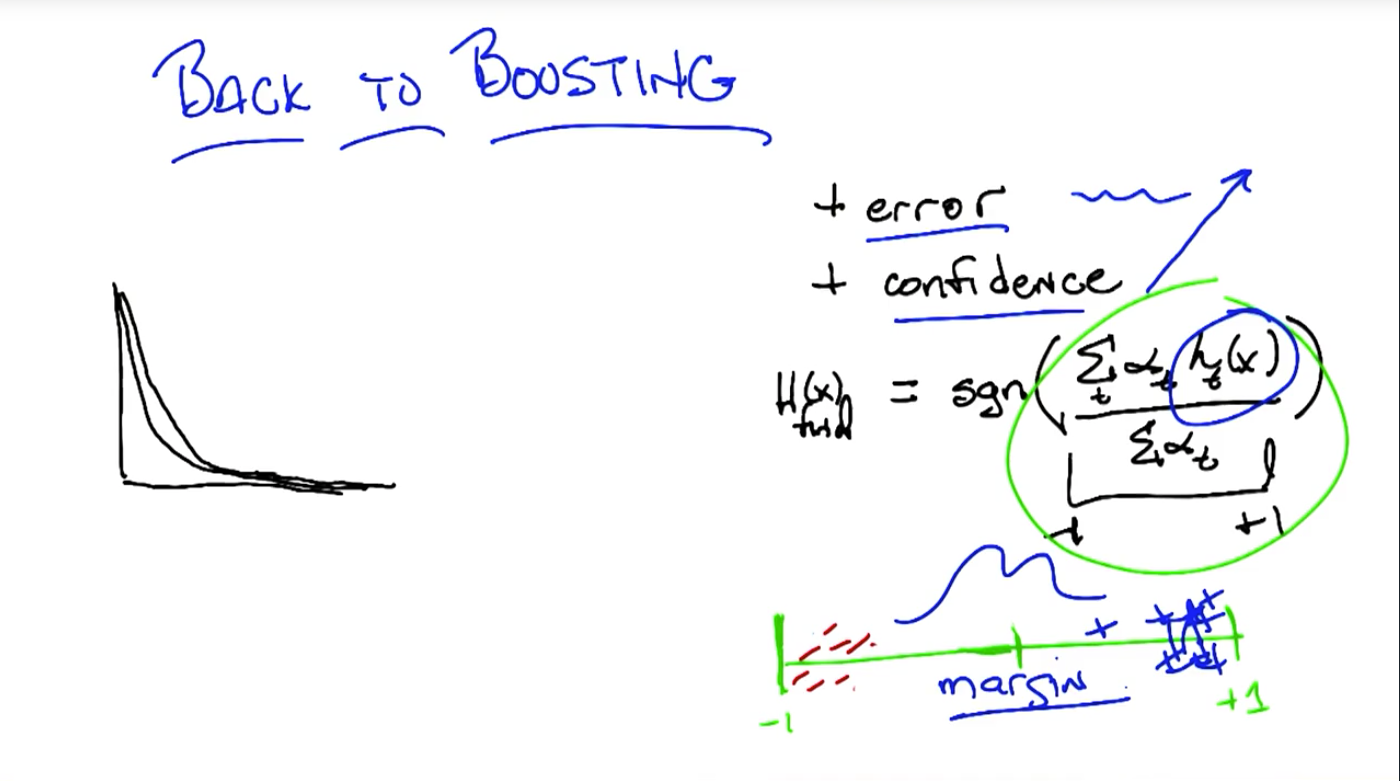 BACK TO BOOSTING
+ error
+ confidence
H(x) final = sgn( Σ_t α_t h_t(x) / Σ α_t )
-1 +1
margin
-1 +1